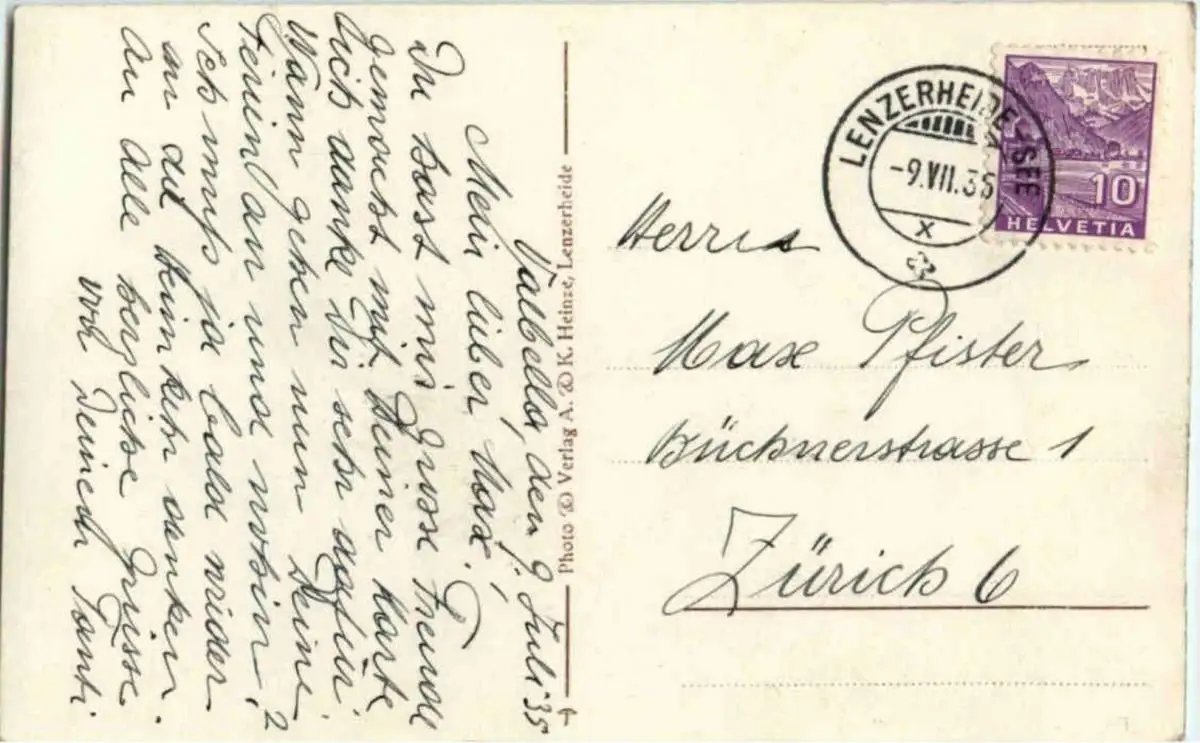 Valbella, den 9. Juli 35
Mein lieber Max!
Du hast mir grosse Freude
gemacht mit Deiner Karte
Dich danke Dir sehr dafür.
Wann gehen nun Deine
Ferien an und wohin?
Ich muss ja bald wieder
an die Heimkehr denken.
An alle herzliche Grüsse
von Deiner Tanti
Photo & Verlag A. & K. Heinze, Lenzerheide
LENZERHEIDE-SEE
-9.VII.35
X
10
HELVETIA
Herrn
Max Pfister
Bücknerstrasse 1
Zürich 6